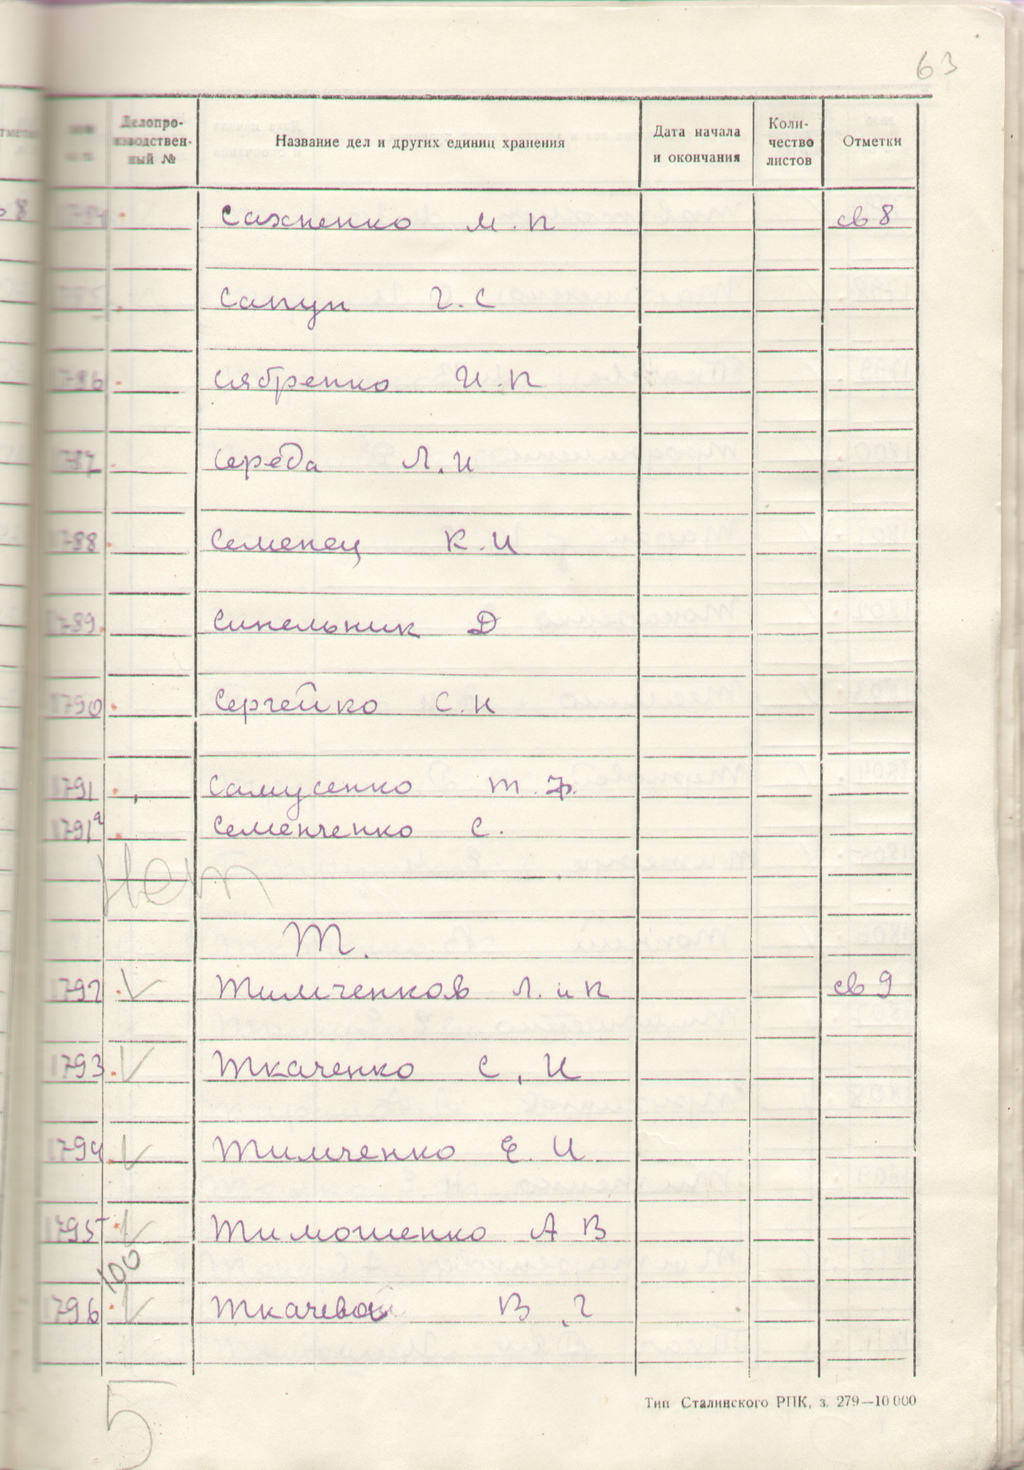 63
Делопро-
изводствен-
ный №
Название дел и других единиц хранения
Дата начала
и окончания
Коли-
чество
листов
Отметки
1784 Сахненко М.П св 8
Сапун Г.С
1786 Сябренко И.П
1787 Середа Л.И
1788 Семенец К.И
1789 Синельник Д
1790 Сергейко С.Н
1791 Самусенко Т.Ф.
1791а Семенченко С.
Нет
Т.
1792 Тимченков Л. и П св 9
1793 Ткаченко С, И
1794 Тимченко Е. И
1795 Тимошенко А В
100
1796 Ткачева В, Г
5
Тип Сталинского РПК, з. 279—10 000